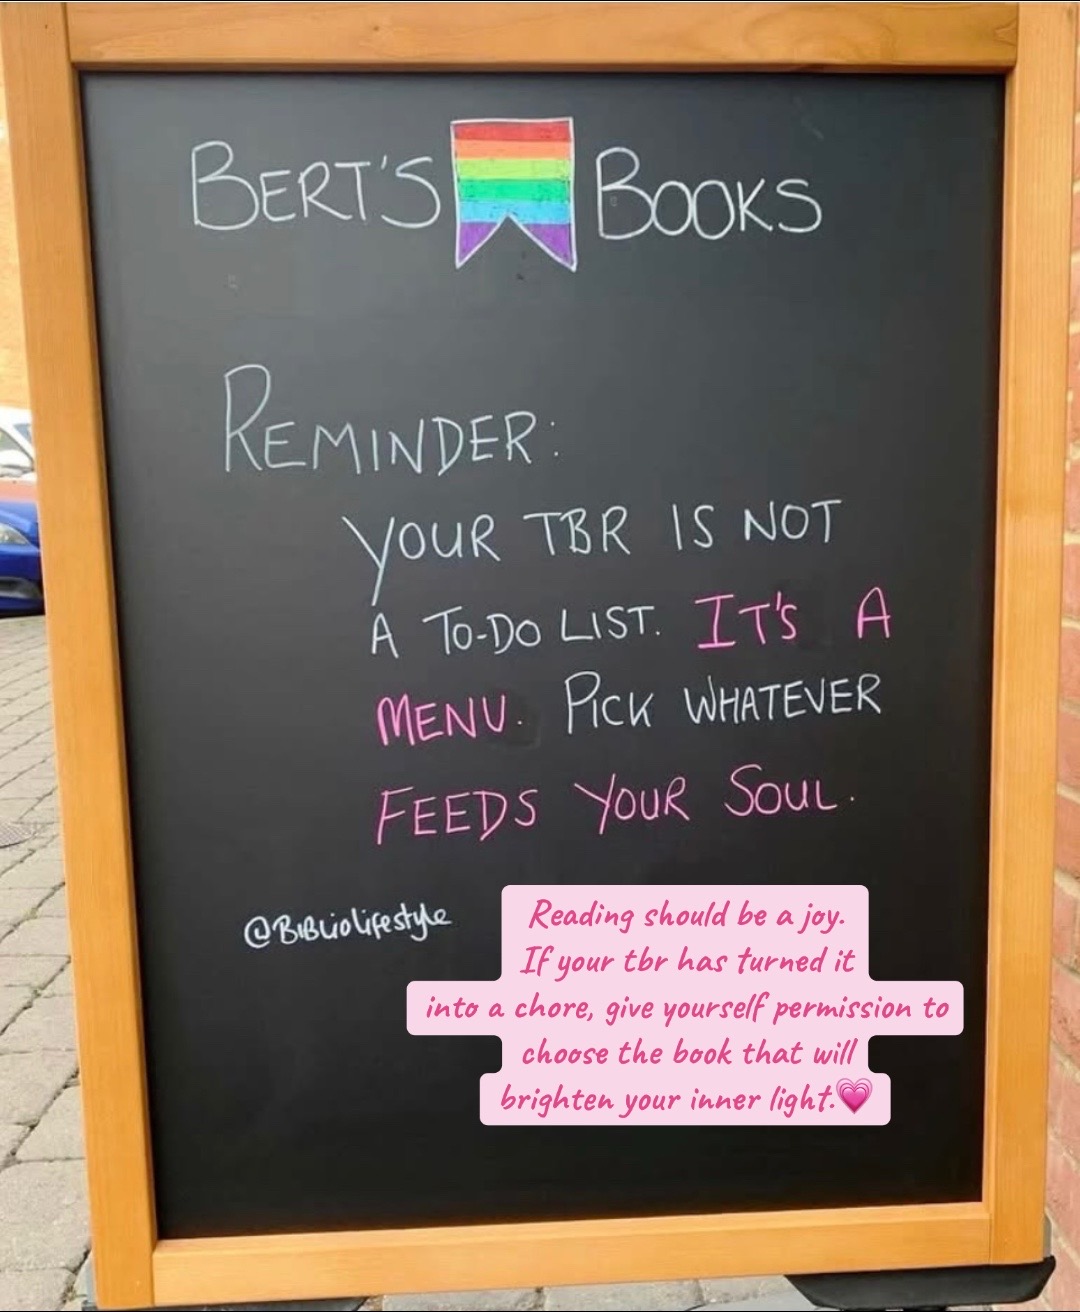 BERT'S BOOKS
REMINDER:
YOUR TBR IS NOT
A TO-DO LIST. IT'S A
MENU. PICK WHATEVER
FEEDS YOUR SOUL.
@BIBLIOlifestyle
Reading should be a joy.
If your tbr has turned it
into a chore, give yourself permission to
choose the book that will
brighten your inner light.💗